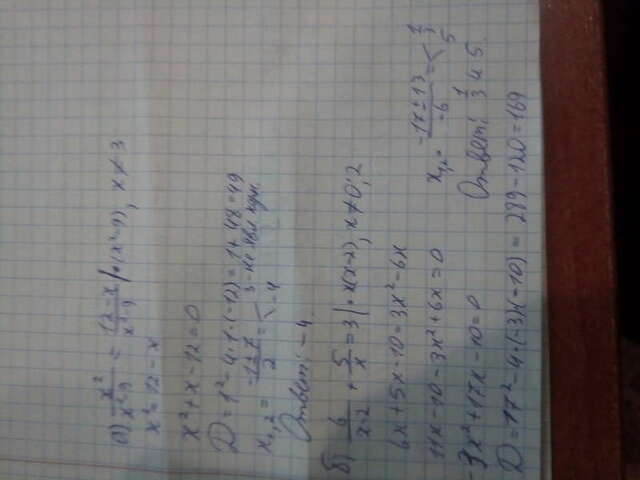 а) x²/(x²-9) = (12-x)/(x²-9) |·(x²-9), x≠3
x²=12-x
x²+x-12=0
D=1²-4·1·(-12)=1+48=49
x₁,₂ = (-1±7)/2 = < 3-не явл корн.
-4
Ответ: -4.
б) 6/(x-2) + 5/x = 3 |·x(x-2), x≠0; 2
6x+5x-10=3x²-6x
11x-10-3x²+6x=0
-3x²+17x-10=0
D=17²-4·(-3)(-10)=289-120=169
x₁,₂= (-17±13)/-6 = < 1/3
5
Ответ: 1/3 и 5.